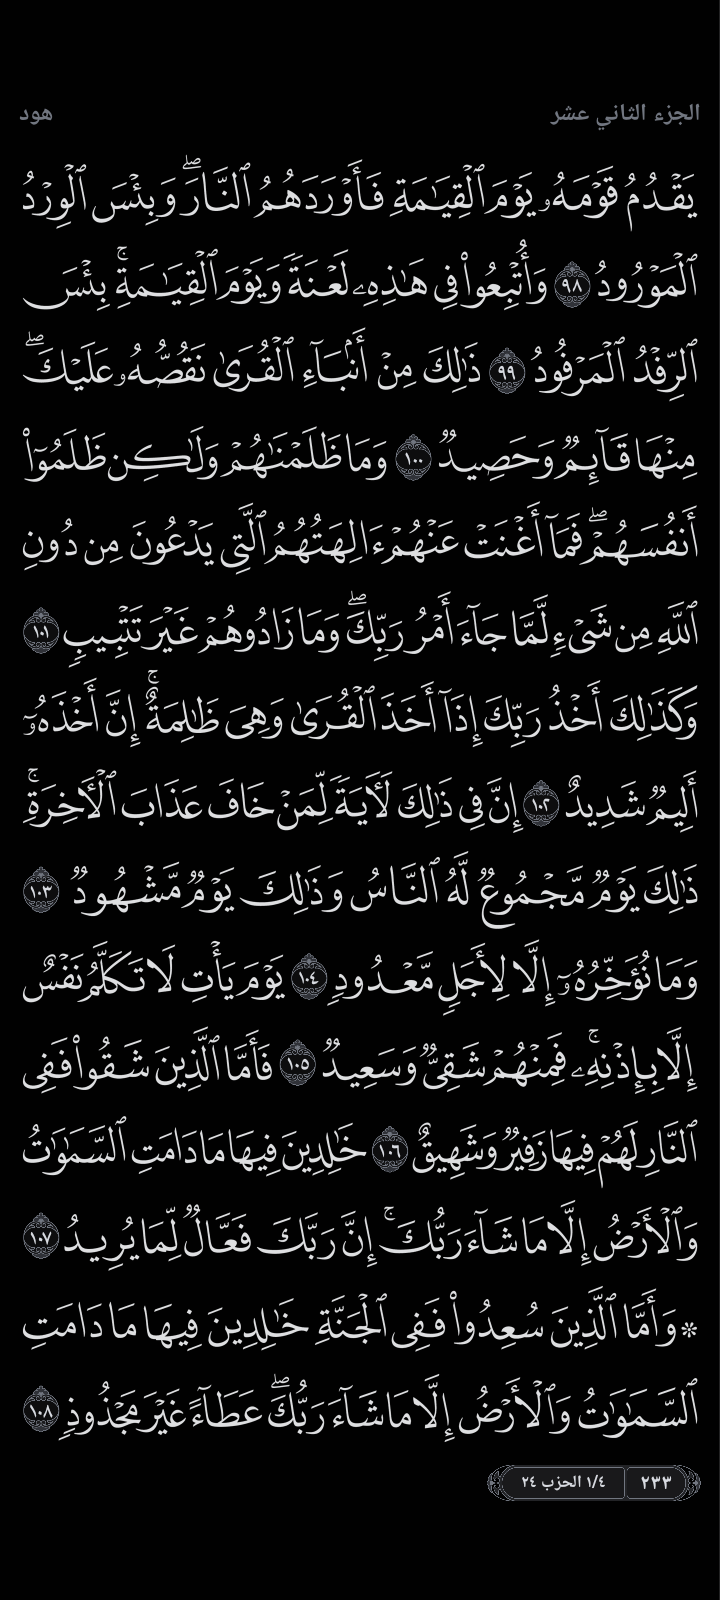 الجزء الثاني عشر
هود
يَقْدُمُ قَوْمَهُۥ يَوْمَ ٱلْقِيَـٰمَةِ فَأَوْرَدَهُمُ ٱلنَّارَ ۖ وَبِئْسَ ٱلْوِرْدُ
ٱلْمَوْرُودُ ٩٨ وَأُتْبِعُوا۟ فِى هَـٰذِهِۦ لَعْنَةً وَيَوْمَ ٱلْقِيَـٰمَةِ ۚ بِئْسَ
ٱلرِّفْدُ ٱلْمَرْفُودُ ٩٩ ذَٰلِكَ مِنْ أَنۢبَآءِ ٱلْقُرَىٰ نَقُصُّهُۥ عَلَيْكَ ۖ
مِنْهَا قَآئِمٌ وَحَصِيدٌ ١٠٠ وَمَا ظَلَمْنَـٰهُمْ وَلَـٰكِن ظَلَمُوٓا۟
أَنفُسَهُمْ ۖ فَمَآ أَغْنَتْ عَنْهُمْ ءَالِهَتُهُمُ ٱلَّتِى يَدْعُونَ مِن دُونِ
ٱللَّهِ مِن شَىْءٍ لَّمَّا جَآءَ أَمْرُ رَبِّكَ ۖ وَمَا زَادُوهُمْ غَيْرَ تَتْبِيبٍ ١٠١
وَكَذَٰلِكَ أَخْذُ رَبِّكَ إِذَآ أَخَذَ ٱلْقُرَىٰ وَهِىَ ظَـٰلِمَةٌ ۚ إِنَّ أَخْذَهُۥٓ
أَلِيمٌ شَدِيدٌ ١٠٢ إِنَّ فِى ذَٰلِكَ لَـَٔايَةً لِّمَنْ خَافَ عَذَابَ ٱلْـَٔاخِرَةِ ۚ
ذَٰلِكَ يَوْمٌ مَّجْمُوعٌ لَّهُ ٱلنَّاسُ وَذَٰلِكَ يَوْمٌ مَّشْهُودٌ ١٠٣
وَمَا نُؤَخِّرُهُۥٓ إِلَّا لِأَجَلٍ مَّعْدُودٍ ١٠٤ يَوْمَ يَأْتِ لَا تَكَلَّمُ نَفْسٌ
إِلَّا بِإِذْنِهِۦ ۚ فَمِنْهُمْ شَقِىٌّ وَسَعِيدٌ ١٠٥ فَأَمَّا ٱلَّذِينَ شَقُوا۟ فَفِى
ٱلنَّارِ لَهُمْ فِيهَا زَفِيرٌ وَشَهِيقٌ ١٠٦ خَـٰلِدِينَ فِيهَا مَا دَامَتِ ٱلسَّمَـٰوَٰتُ
وَٱلْأَرْضُ إِلَّا مَا شَآءَ رَبُّكَ ۚ إِنَّ رَبَّكَ فَعَّالٌ لِّمَا يُرِيدُ ١٠٧
۞ وَأَمَّا ٱلَّذِينَ سُعِدُوا۟ فَفِى ٱلْجَنَّةِ خَـٰلِدِينَ فِيهَا مَا دَامَتِ
ٱلسَّمَـٰوَٰتُ وَٱلْأَرْضُ إِلَّا مَا شَآءَ رَبُّكَ ۖ عَطَآءً غَيْرَ مَجْذُوذٍ ١٠٨
٢٣٣ ١/٤ الحزب ٢٤